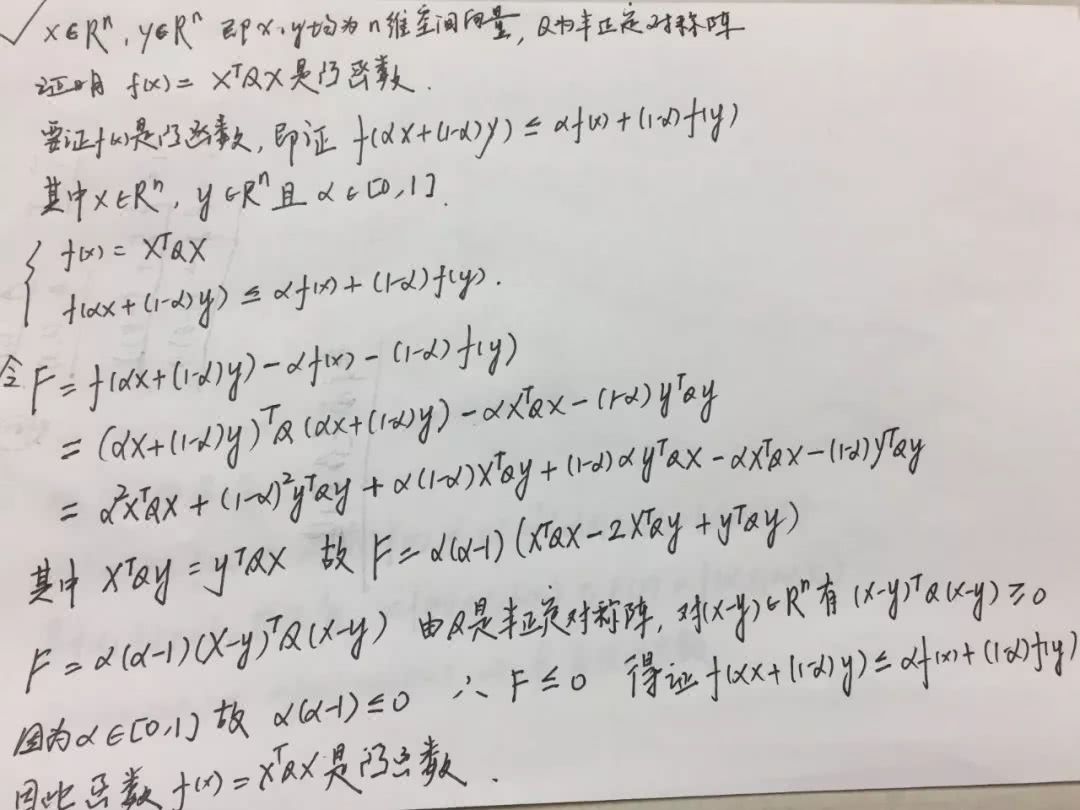 ✓ x∈Rⁿ, y∈Rⁿ 即x、y均为n维空间向量, Q为半正定对称阵
证明 f(x) = xᵀQx 是凸函数.
要证f(x)是凸函数, 即证 f(αx+(1-α)y) ≤ αf(x)+(1-α)f(y)
其中x∈Rⁿ, y∈Rⁿ且 α∈[0,1].
{ f(x) = xᵀQx
f(αx+(1-α)y) ≤ αf(x)+(1-α)f(y).
令 F = f(αx+(1-α)y) - αf(x) - (1-α)f(y)
= (αx+(1-α)y)ᵀQ(αx+(1-α)y) - αxᵀQx - (1-α)yᵀQy
= α²xᵀQx + (1-α)²yᵀQy + α(1-α)xᵀQy + (1-α)αyᵀQx - αxᵀQx - (1-α)yᵀQy
其中 xᵀQy = yᵀQx 故 F = α(α-1)(xᵀQx - 2xᵀQy + yᵀQy)
F = α(α-1)(x-y)ᵀQ(x-y) 由Q是半正定对称阵, 对(x-y)∈Rⁿ有 (x-y)ᵀQ(x-y) ≥ 0
因为α∈[0,1] 故 α(α-1) ≤ 0 ∴ F ≤ 0 得证 f(αx+(1-α)y) ≤ αf(x)+(1-α)f(y)
因此函数 f(x) = xᵀQx 是凸函数.